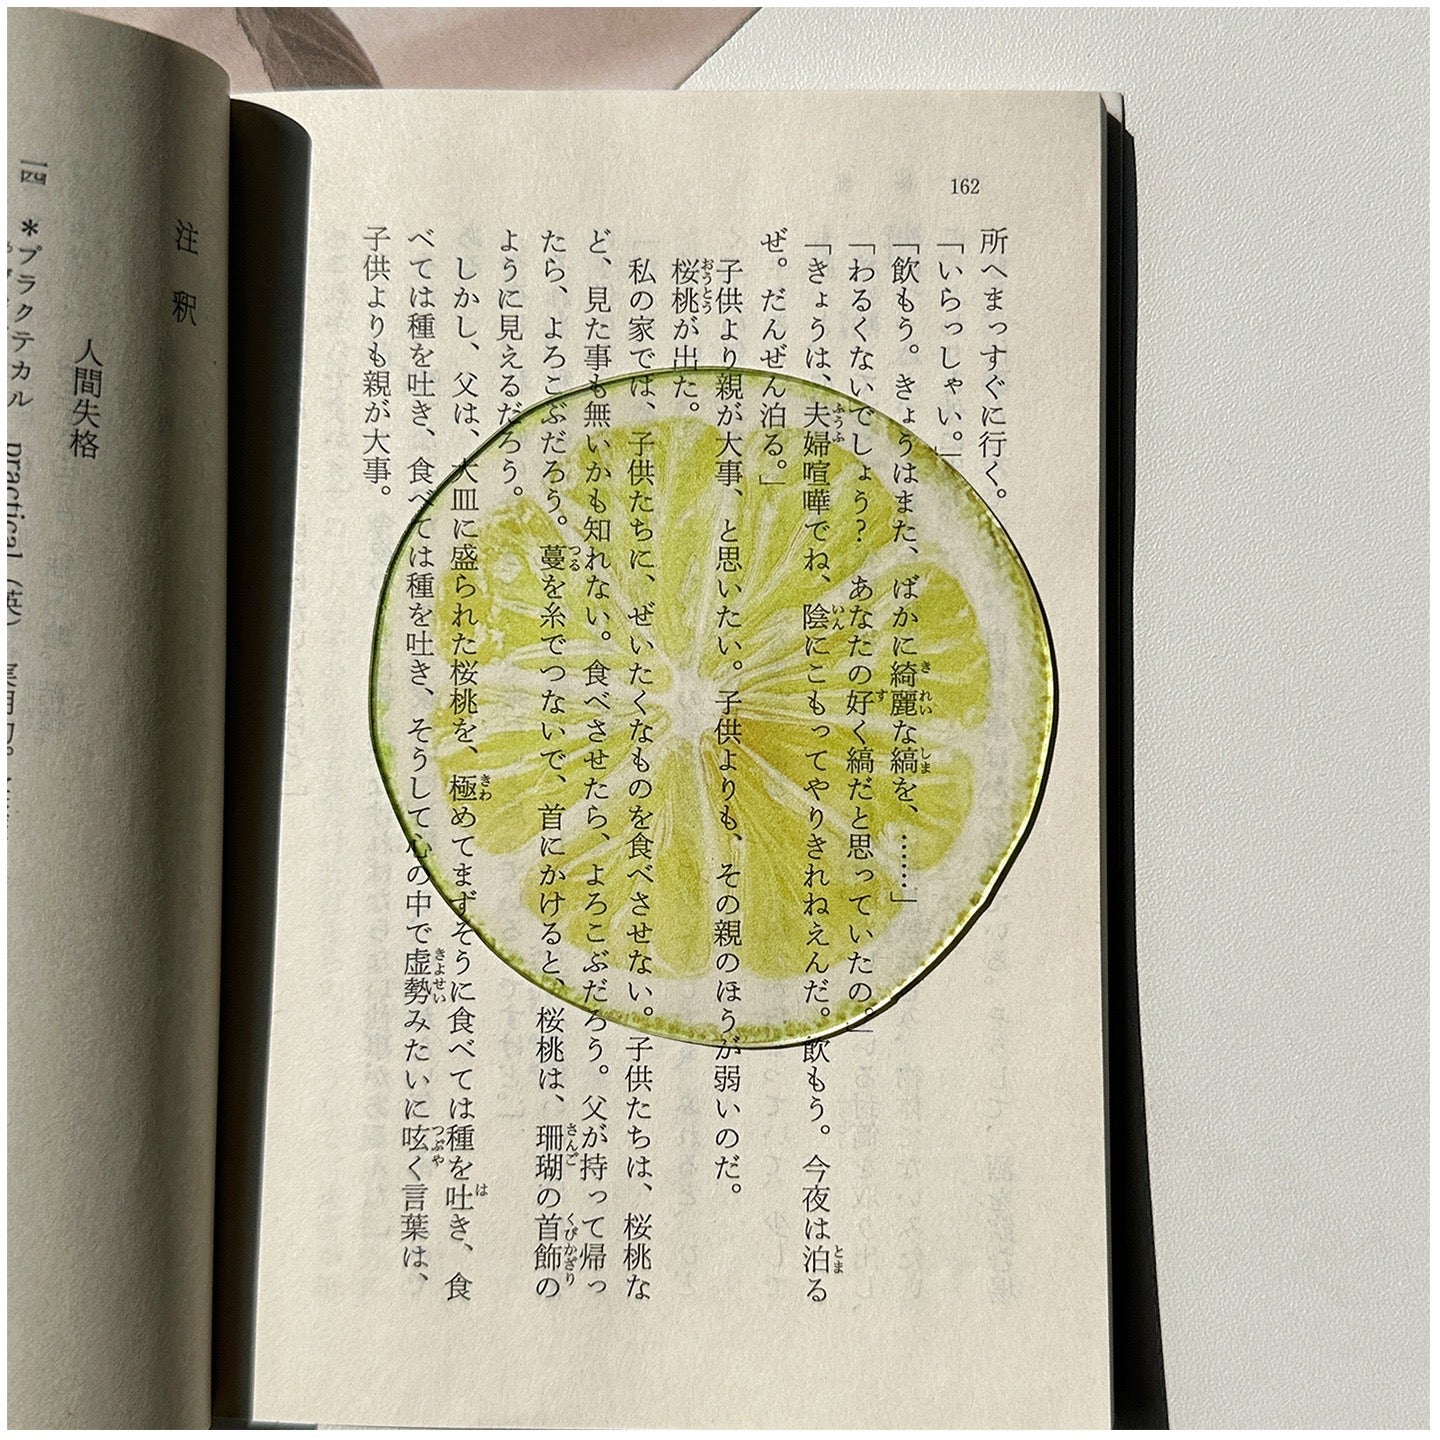 162
所へまっすぐに行く。
「いらっしゃい。」
「飲もう。きょうはまた、ばかに綺麗な縞を、……」
「わるくないでしょう？　あなたの好く縞だと思っていたの。」
「きょうは、夫婦喧嘩でね、陰にこもってやりきれねえんだ。飲もう。今夜は泊る
ぜ。だんぜん泊る。」
子供より親が大事、と思いたい。子供よりも、その親のほうが弱いのだ。
桜桃が出た。
私の家では、子供たちに、ぜいたくなものを食べさせない。子供たちは、桜桃な
ど、見た事も無いかも知れない。食べさせたら、よろこぶだろう。父が持って帰っ
たら、よろこぶだろう。蔓を糸でつないで、首にかけると、桜桃は、珊瑚の首飾の
ように見えるだろう。
しかし、父は、大皿に盛られた桜桃を、極めてまずそうに食べては種を吐き、食
べては種を吐き、食べては種を吐き、そうして心の中で虚勢みたいに呟く言葉は、
子供よりも親が大事。
注釈
人間失格
一四　＊プラクテカル　practical（英）